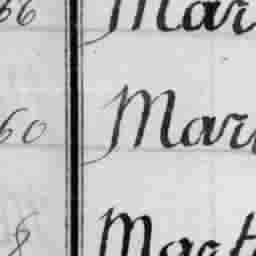 66 Mar
60 Mar
8 Mart